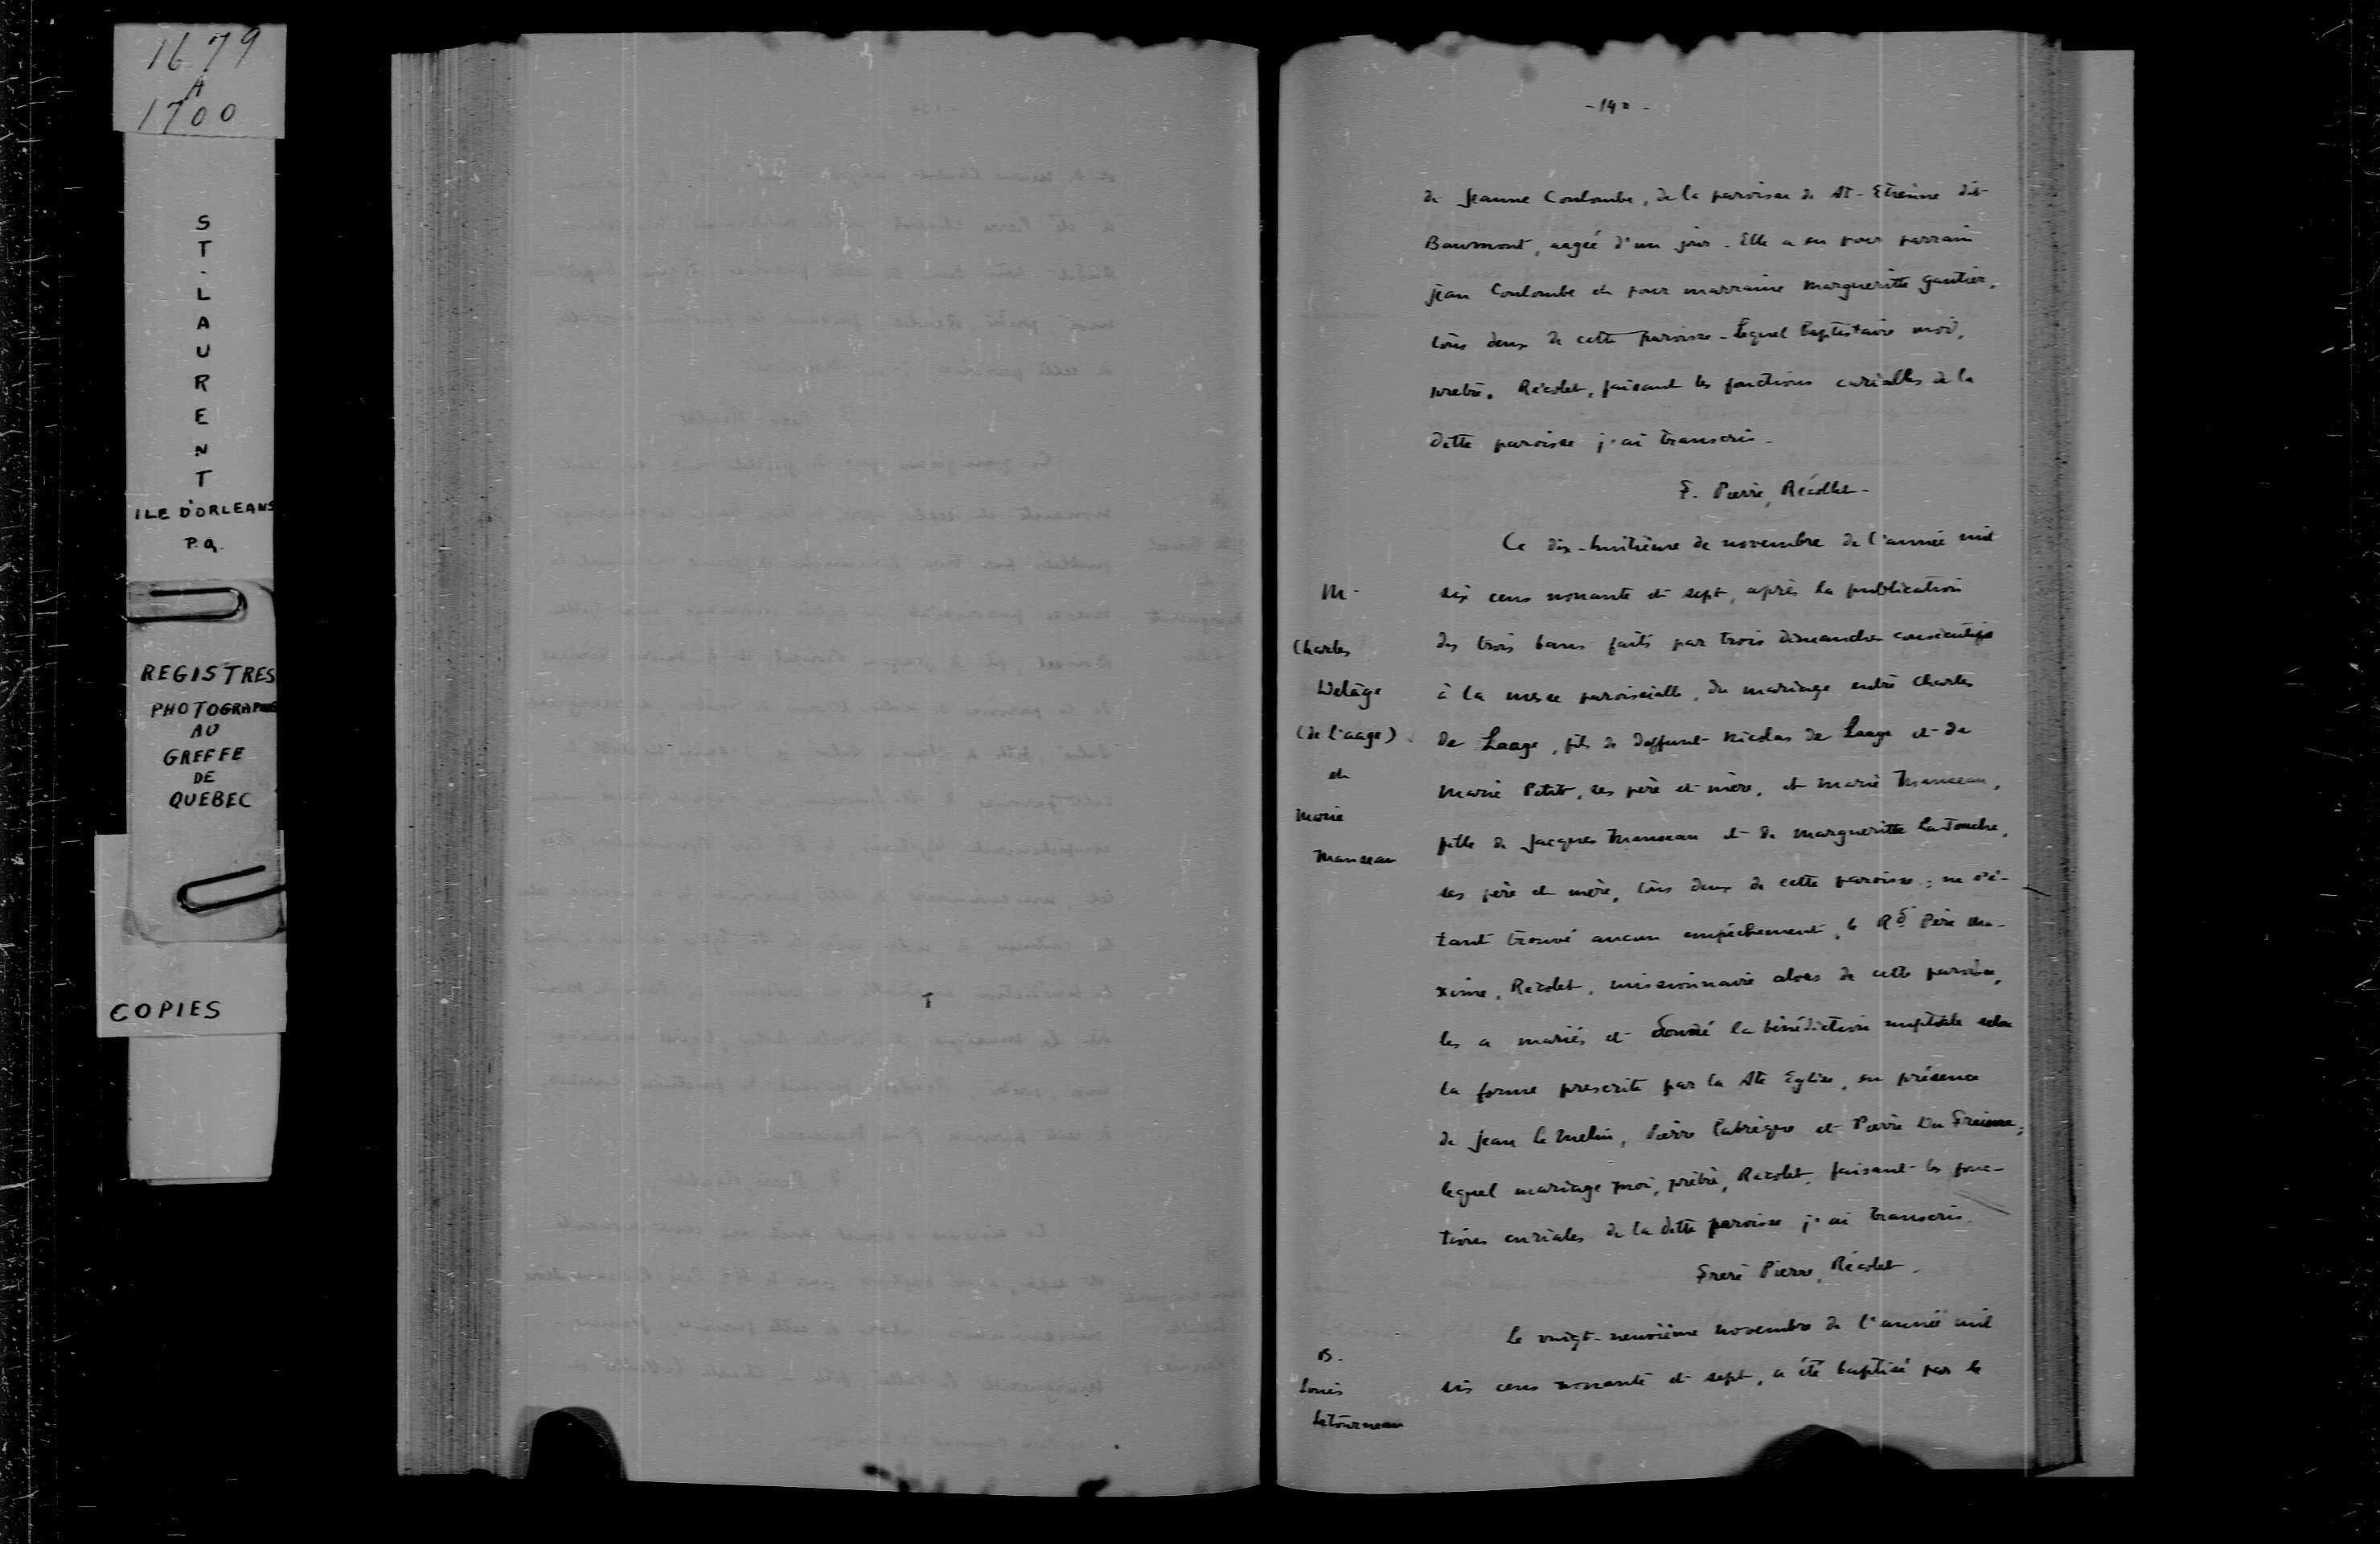 1679
A
1700
ST. LAURENT
ILE D'ORLEANS
P.Q.
REGISTRES
PHOTOGRAPHIE
AU
GREFFE
DE
QUEBEC
COPIES
- 190 -
de Jeanne Coulombe, de la paroisse de St-Etienne dit
Baumont, aagée d'un jour. Elle a eu pour parrain
jean Coulombe et pour marraine Margueritte Gautier,
tous deux de cette paroisse - Lequel Baptistaire moi,
prebtre. Récolet, faisant les fonctions curialles de la
ditte paroisse j'ai transcris.
F. Pierre, Récollet -
Ce dix-huitième de novembre de l'année mil
six cens nonante et sept, après la publication
des trois bans faits par trois dimanches consecutifs
à la messe paroissialle, du mariage entre Charles
De Laage, fils de deffunt Nicolas de Laage et de
Marie Petit, ses père et mère, et Marie Manseau,
fille de Jacques Manseau et de Margueritte LaTouche,
ses père et mère, tous deux de cette paroisse; ne s'é-
tant trouvé aucun empêchement, le Rd Père Ma-
xime, Recolet, missionnaire alors de cette paroisse,
les a mariés et donné la bénédiction nuptiale selon
la forme prescrite par la Ste Eglise, en présence
de Jean le Melin, Pierre Labrèque et Pierre Du Freisne;
lequel mariage moi, prêtre, Recolet, faisant les fonc-
tions curiales de la ditte paroisse j'ai transcris.
Frere Pierre, Récolet.
Le vingt-neuvième novembre de l'année mil
six cens nonante et sept, a été baptisé par le
M -
Charles
Delâge
(de l'aage)
et
Marie
Manseau
B.
Louis
Letourneau